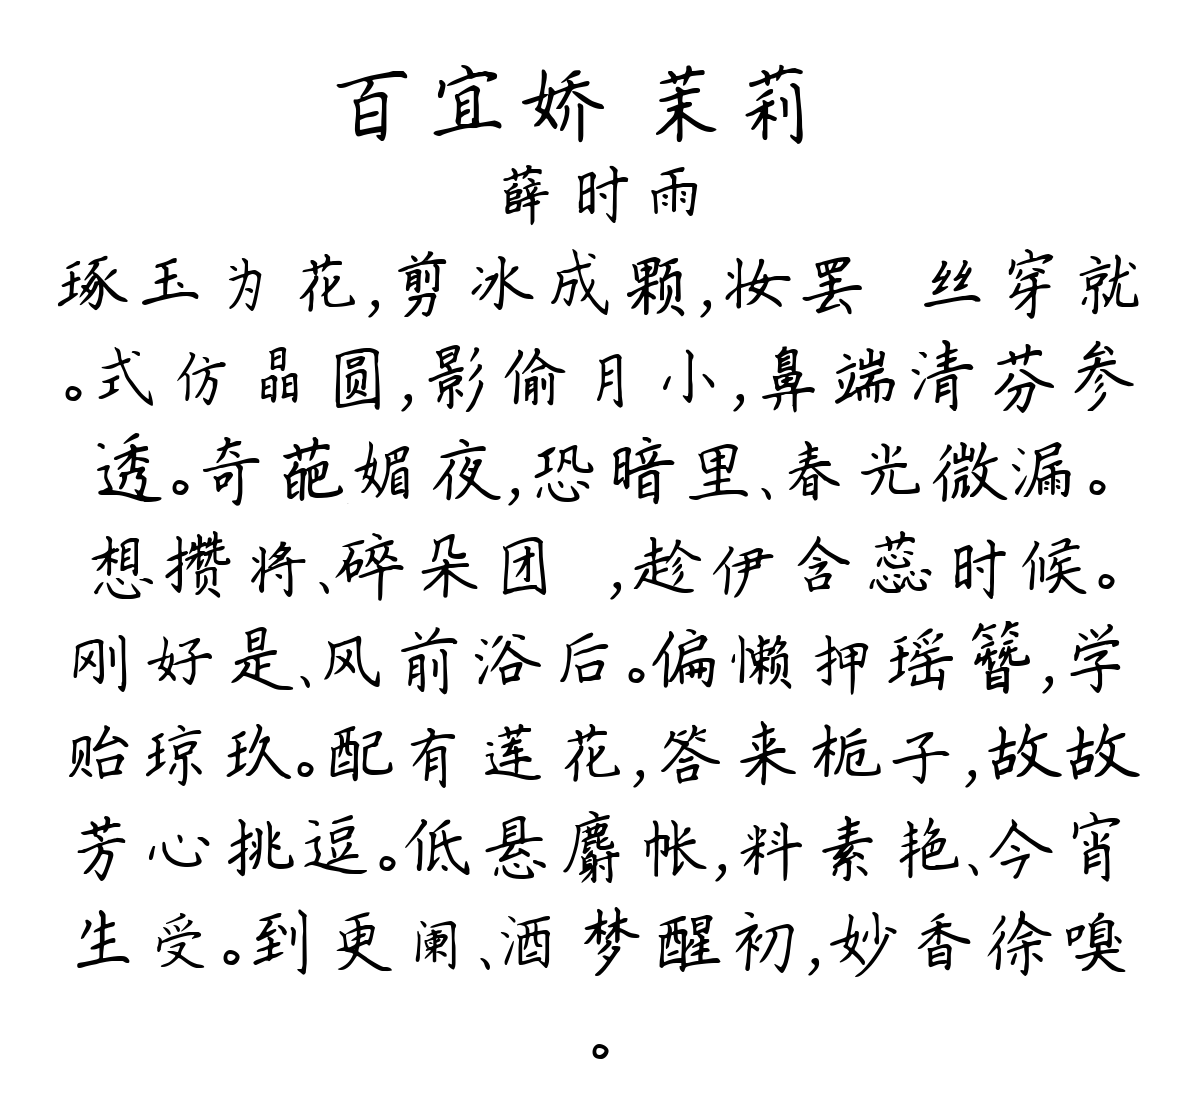 百宜娇 茉莉
薛时雨
琢玉为花,剪冰成颗,妆罢 丝穿就
。式仿晶圆,影偷月小,鼻端清芬参
透。奇葩媚夜,恐暗里、春光微漏。
想攒将、碎朵团 ,趁伊含蕊时候。
刚好是、风前浴后。偏懒押瑶簪,学
贻琼玖。配有莲花,答来栀子,故故
芳心挑逗。低悬麝帐,料素艳、今宵
生受。到更阑、酒梦醒初,妙香徐嗅
。